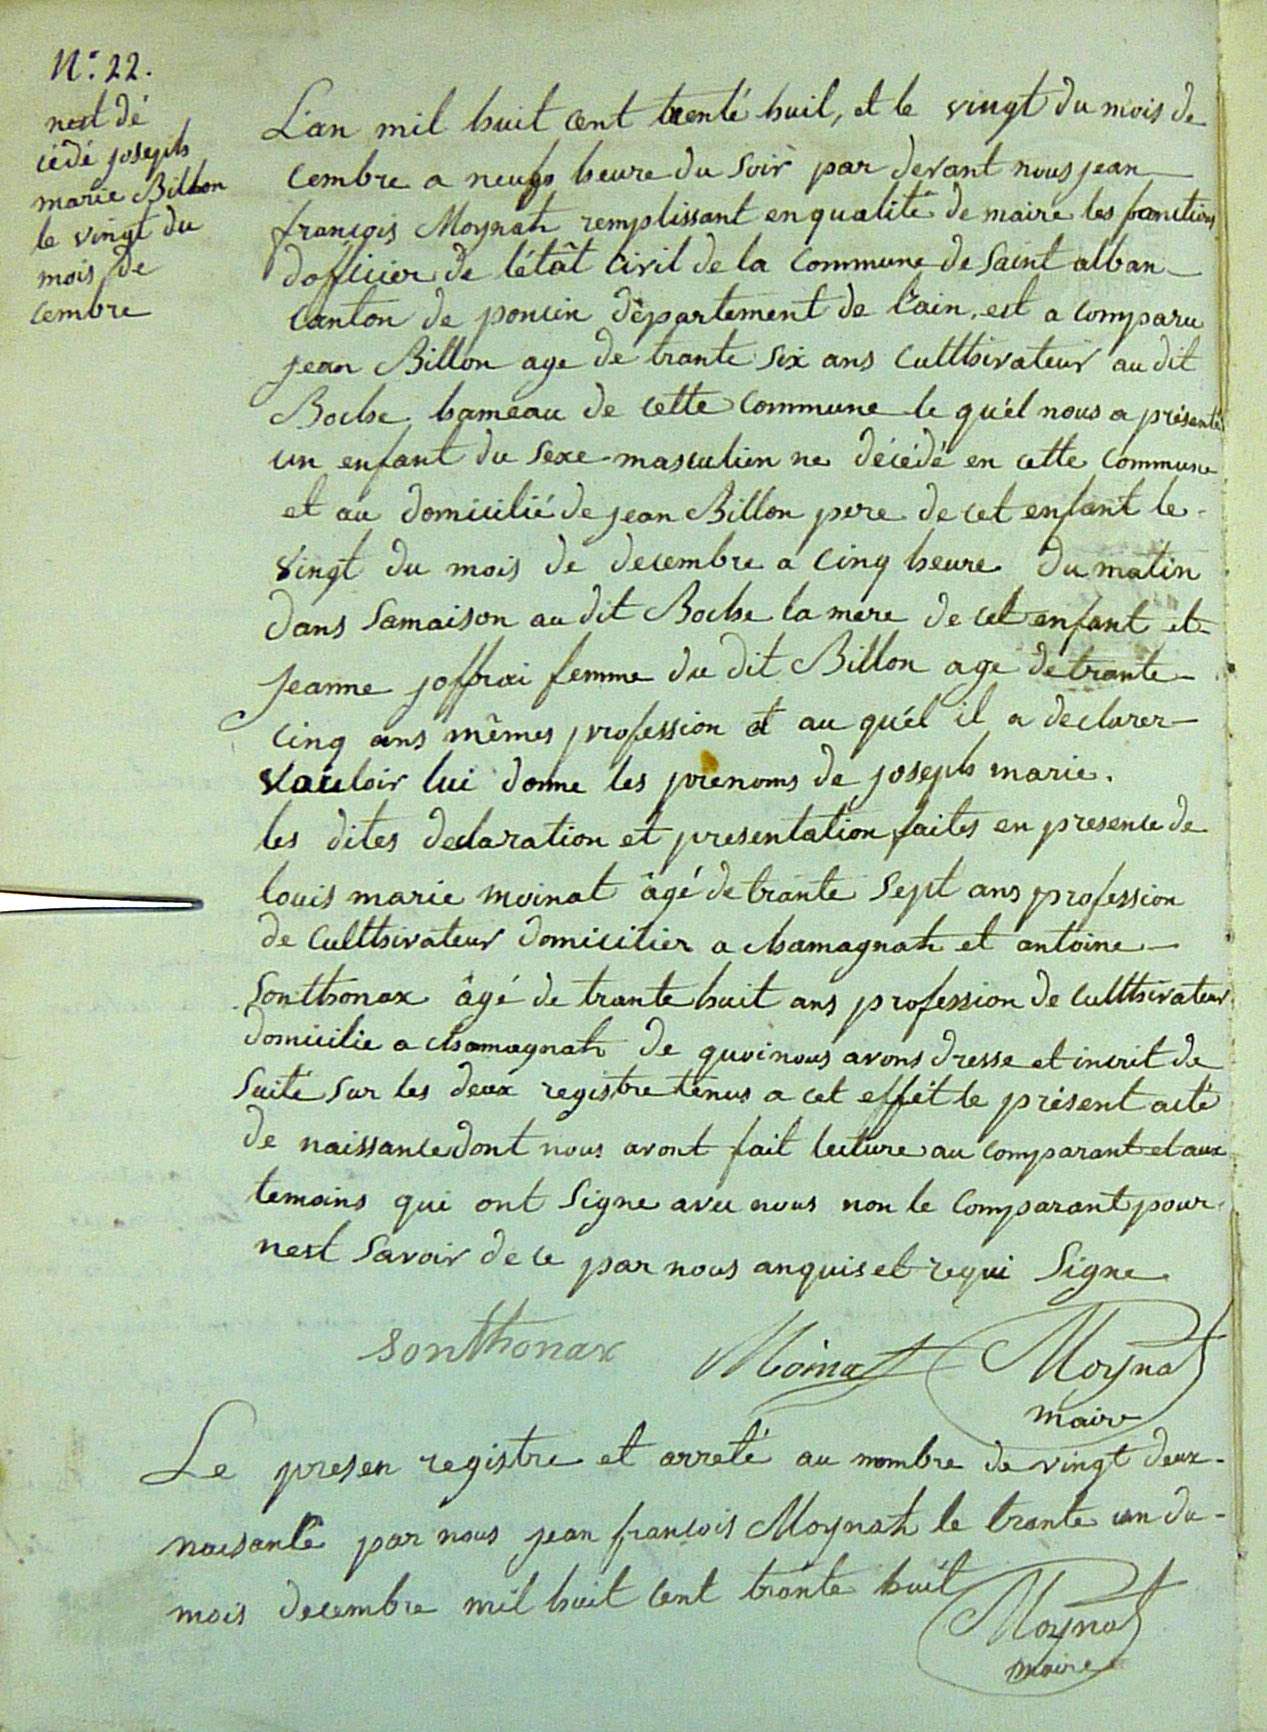 N.° 22.
nest dé
cédé joseph
marie Billon
le vingt du
mois de
cembre
L'an mil huit cent trente huit, et le vingt du mois de
cembre a neufs heure du soir par devant nous jean
françois Moynat remplissant en qualité de maire les fonctions
dofficier de l'étât Civil de la Commune de Saint alban
Canton de poncin département de l'ain, est a comparu
jean Billon age de trante six ans Culthivateur au dit
Boche hameau de cette commune le quél nous a présenté
un enfant du sexe masculien ne décédé en cette Commune
et au domicilié de jean Billon pere de cet enfant le
vingt du mois de decembre a cinq heure du matin
dans samaison au dit Boche la mere de cet enfant et
jeanne joffrai femme du dit Billon age de trante
cinq ans mêmes profession et au quél il a declarer
vouloir lui donne les prenoms de joseph marie.
les dites declaration et presentation faites en presence de
louis marie moinat âgé de trante sept ans profession
de Culthivateur domicilier a chamagnat et antoine
Sonthonax âgé de trante huit ans profession de culthivateur
domicilie a chamagnat de quoi nous avons dresse et incrit de
suite sur les deux registre tenus a cet effét le présent acte
de naissance dont nous avont fait lecture au comparant et aux
temoins qui ont signe avec nous non le Comparant pour
nest savoir de ce par nous anquis et requi signe
sonthonax Moinat Moynat
maire
Le presen registre et arreté au nombre de vingt deux
naisante par nous jean françois Moynat le trante un du
mois decembre mil huit cent trante huit
Moynat
maire